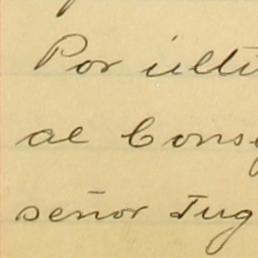 Por últi
al Cons
señor Jug